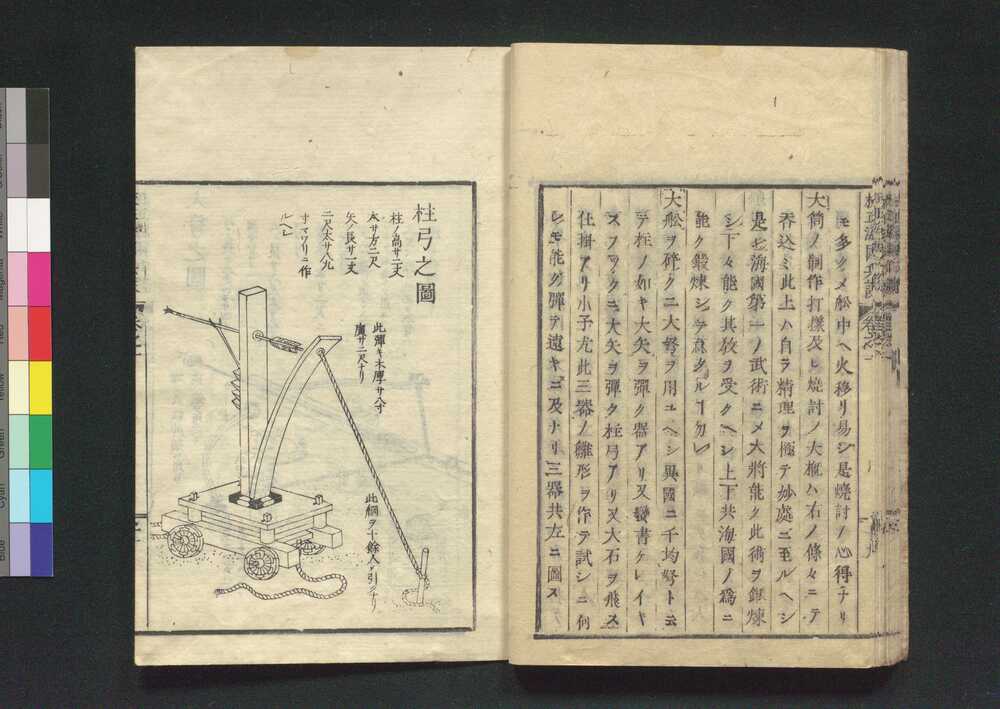 モ多クメ舩中ヘ火移リ易シ是燒討ノ心得ナリ
大筒ノ制作打樣及ヒ燒討ノ大概ハ右ノ條々ニテ
呑込ミ此上ハ自ラ精理ヲ極テ妙處ニ至ルヘシ
是レ海國第一ノ武術ニメ大將能ク此術ヲ鍜煉
シ下々能ク其敎ヲ受クヘシ上下共海國ノ爲ニ
能ク鍜煉シテ怠タルヿ勿レ
大舩ヲ碎クニ大弩ヲ用ユヘシ異國ニ千均弩ト云
テ柱ノ如キ大矢ヲ彈ク器アリ又蠻書ケレイキ
スフックニ大矢ヲ彈ク柱弓アリ又大石ヲ飛ス
仕掛アリ小子尤此三器ノ雛形ヲ作テ試シニ何
レモ能ク彈テ遠キニ及ナリ三器共左ニ圖ス
柱弓之圖
柱ノ高サ二丈
太サ方二尺
矢ノ長サ一丈
二尺太サ八九
寸マワリニ作
ルヘシ
此彈キ木厚サ八寸
廣サ二尺ナリ
此綱ヲ十餘人〆引ナリ
Blue
Cyan
Green
Yellow
Red
Magenta
White